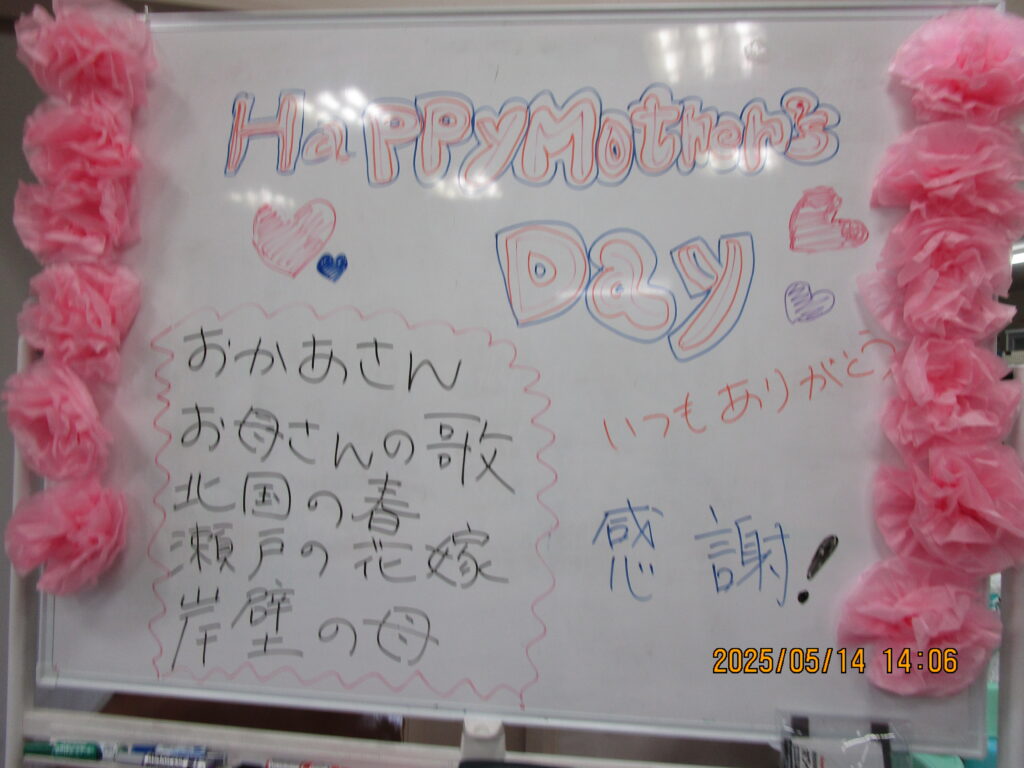 HaPPyMother's
Day
おかあさん
お母さんの歌
北国の春
瀬戸の花嫁
岸壁の母
いつもありがとう
感謝!
2025/05/14 14:06